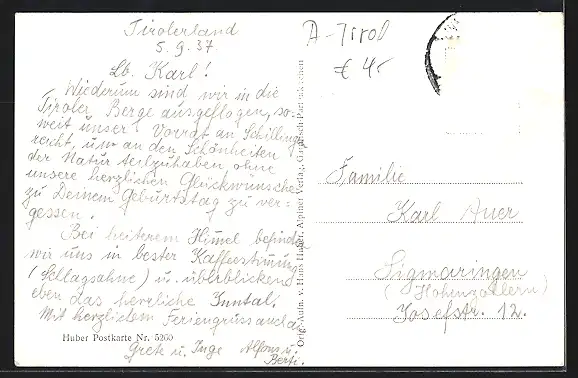 Tirolerland
5.9.37
A-Tirol
€ 4.-
Lb. Karl!
Wiederum sind wir in die
Tiroler Berge ausgeflogen, so-
weit unser Vorrat an Schillinge
reicht, um an den Schönheiten
der Natur teilzuhaben ohne
unsere herzlichen Glückwünsche
zu Deinem Geburtstag zu ver-
gessen.
Bei heiterem Himmel befinden
wir uns in bester Kaffeestimmung
(Schlagsahne) u. überblickend
eben das herrliche Inntal,
Mit herzlichem Feriengruss
Gretk u. Inge Alfons u.
Berti.
Huber Postkarte Nr. 5260
Orig.-Aufn. v. Hans Huber, Alpiner Verlag, Garmisch-Partenkirchen
Familie
Karl Auer
Sigmaringen
(Hohenzollern)
Josefstr. 12.